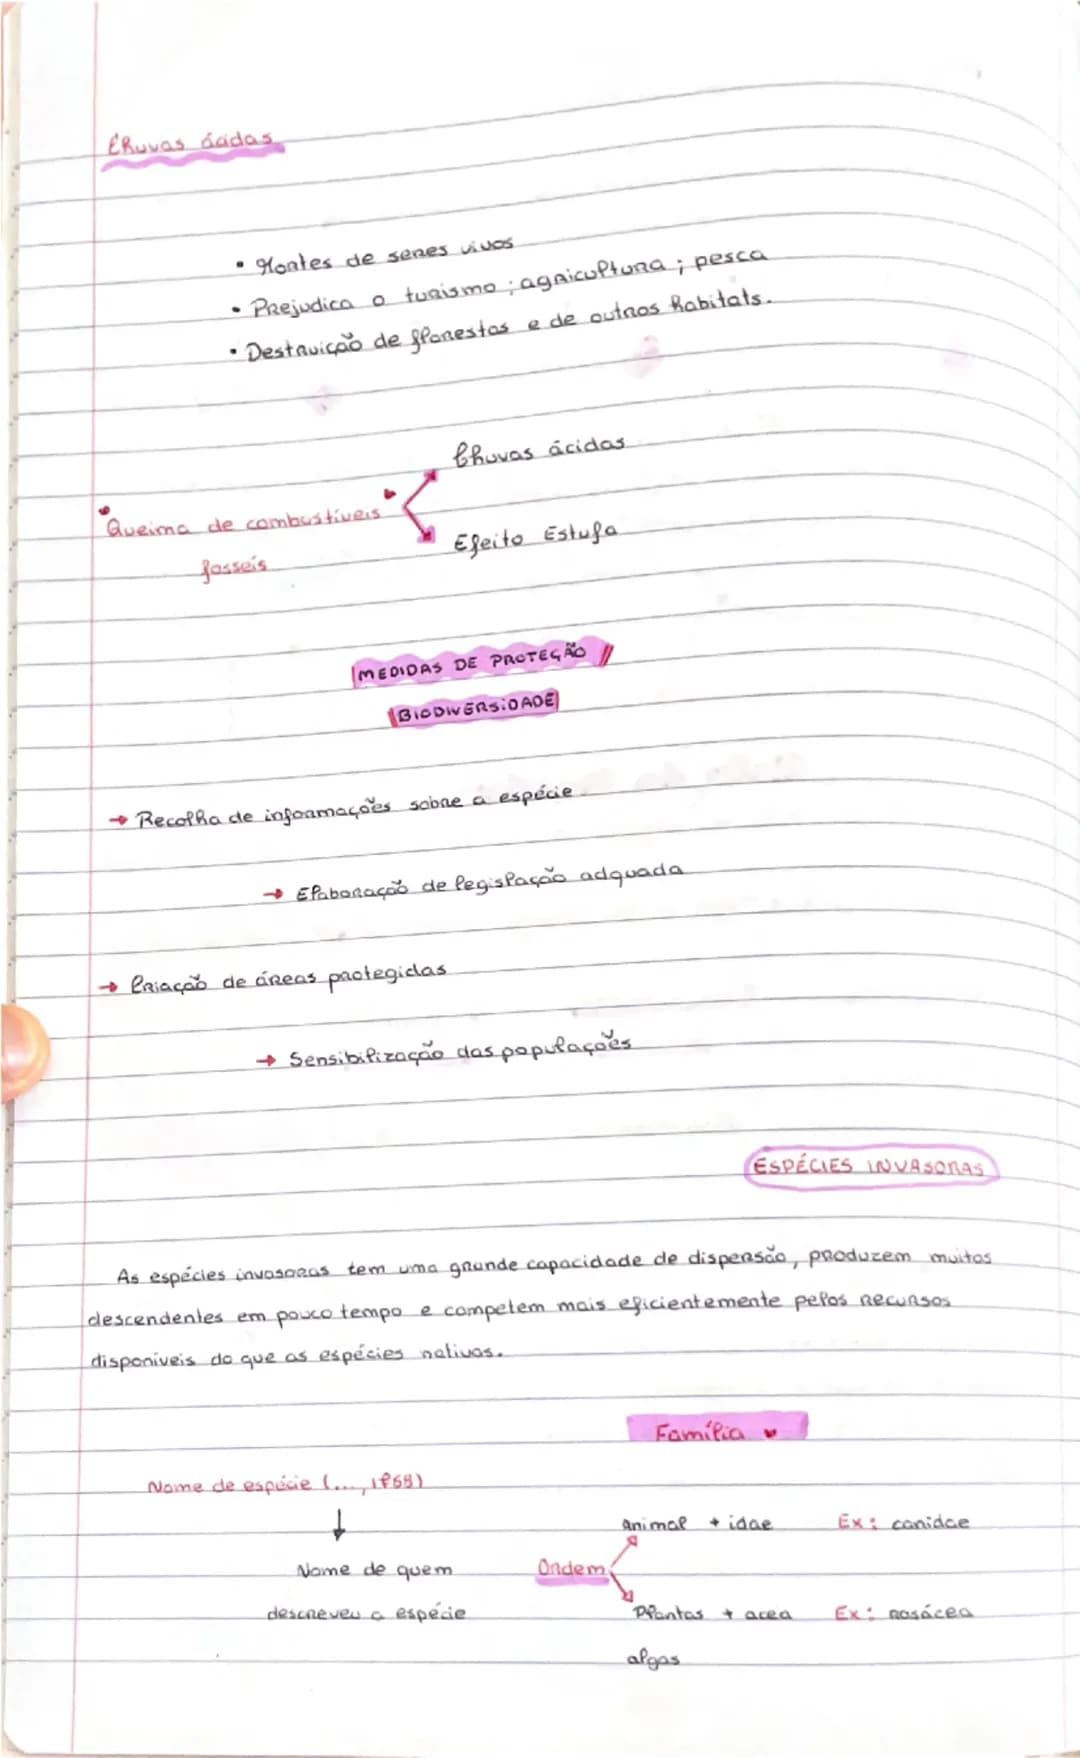 Chuvas ácidas
• Mortes de seres vivos
• Prejudica o turismo ; agricultura ; pesca
• Destruição de florestas e de outros habitats.
Chuvas ácidas
Queima de combustíveis
fosseis
Efeito Estufa
MEDIDAS DE PROTEÇÃO
BIODIVERSIDADE
→ Recolha de informações sobre a espécie
→ Elaboração de legislação adquada
→ Criação de áreas protegidas
→ Sensibilização das populações
ESPÉCIES INVASORAS
As espécies invasoras tem uma grande capacidade de dispersão, produzem muitos
descendentes em pouco tempo e competem mais eficientemente pelos recursos
disponíveis do que as espécies nativas.
Família
Nome de espécie (..., 1758)
↓
Nome de quem
descreveu a espécie
Animal + idae Ex: canidae
Ordem
Plantas + acea Ex: rosácea
algas